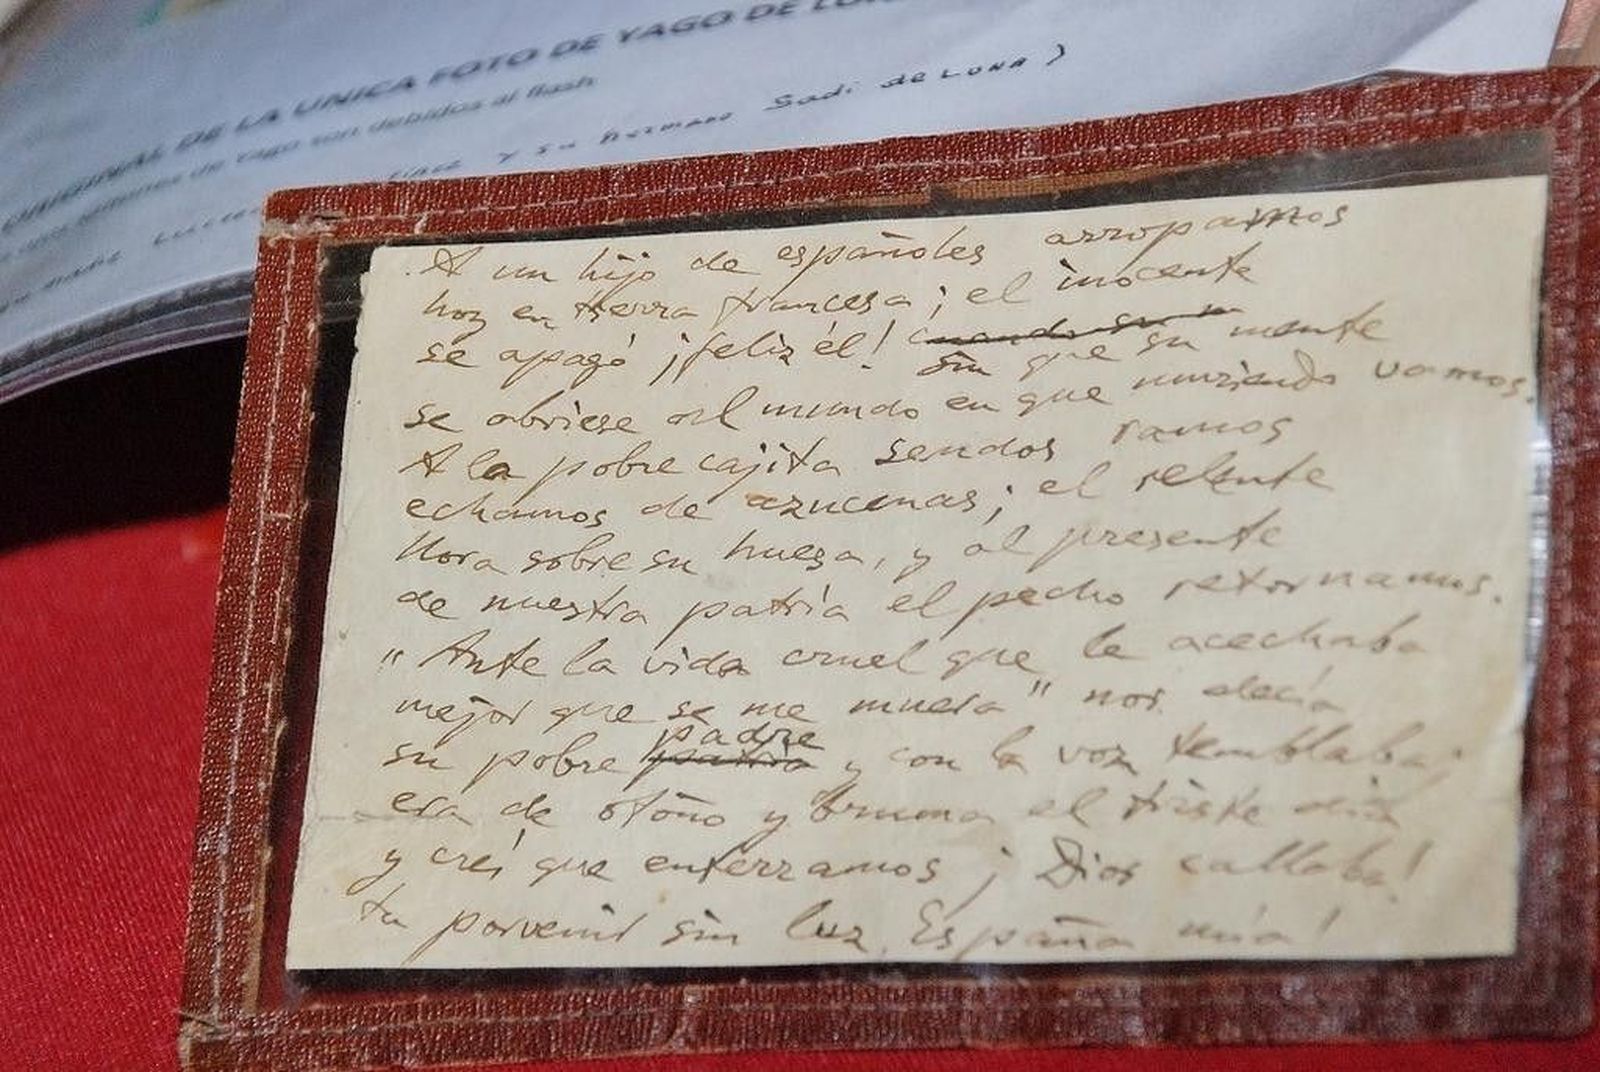 ORIGINAL DE LA UNICA FOTO DE YAGO DE
de Yago son debidos al flash
y su hermano Sadi de LUNA)
A un hijo de españoles arropamos
hoy en tierra francesa; el inocente
se apagó ¡feliz él! cuando su m sin que su mente
se abriese al mundo en que muriendo vamos.
A la pobre cajita sendos ramos
echamos de azucenas; el relente
llora sobre su huesa, y al presente
de nuestra patria el pecho retornamos.
"Ante la vida cruel que le acechaba
mejor que se me muera" nos decía
su pobre patria padre y con la voz temblaba;
era de otoño y bruma el triste día
y creí que enterramos ¡Dios callaba!
tu porvenir sin luz, España mía!